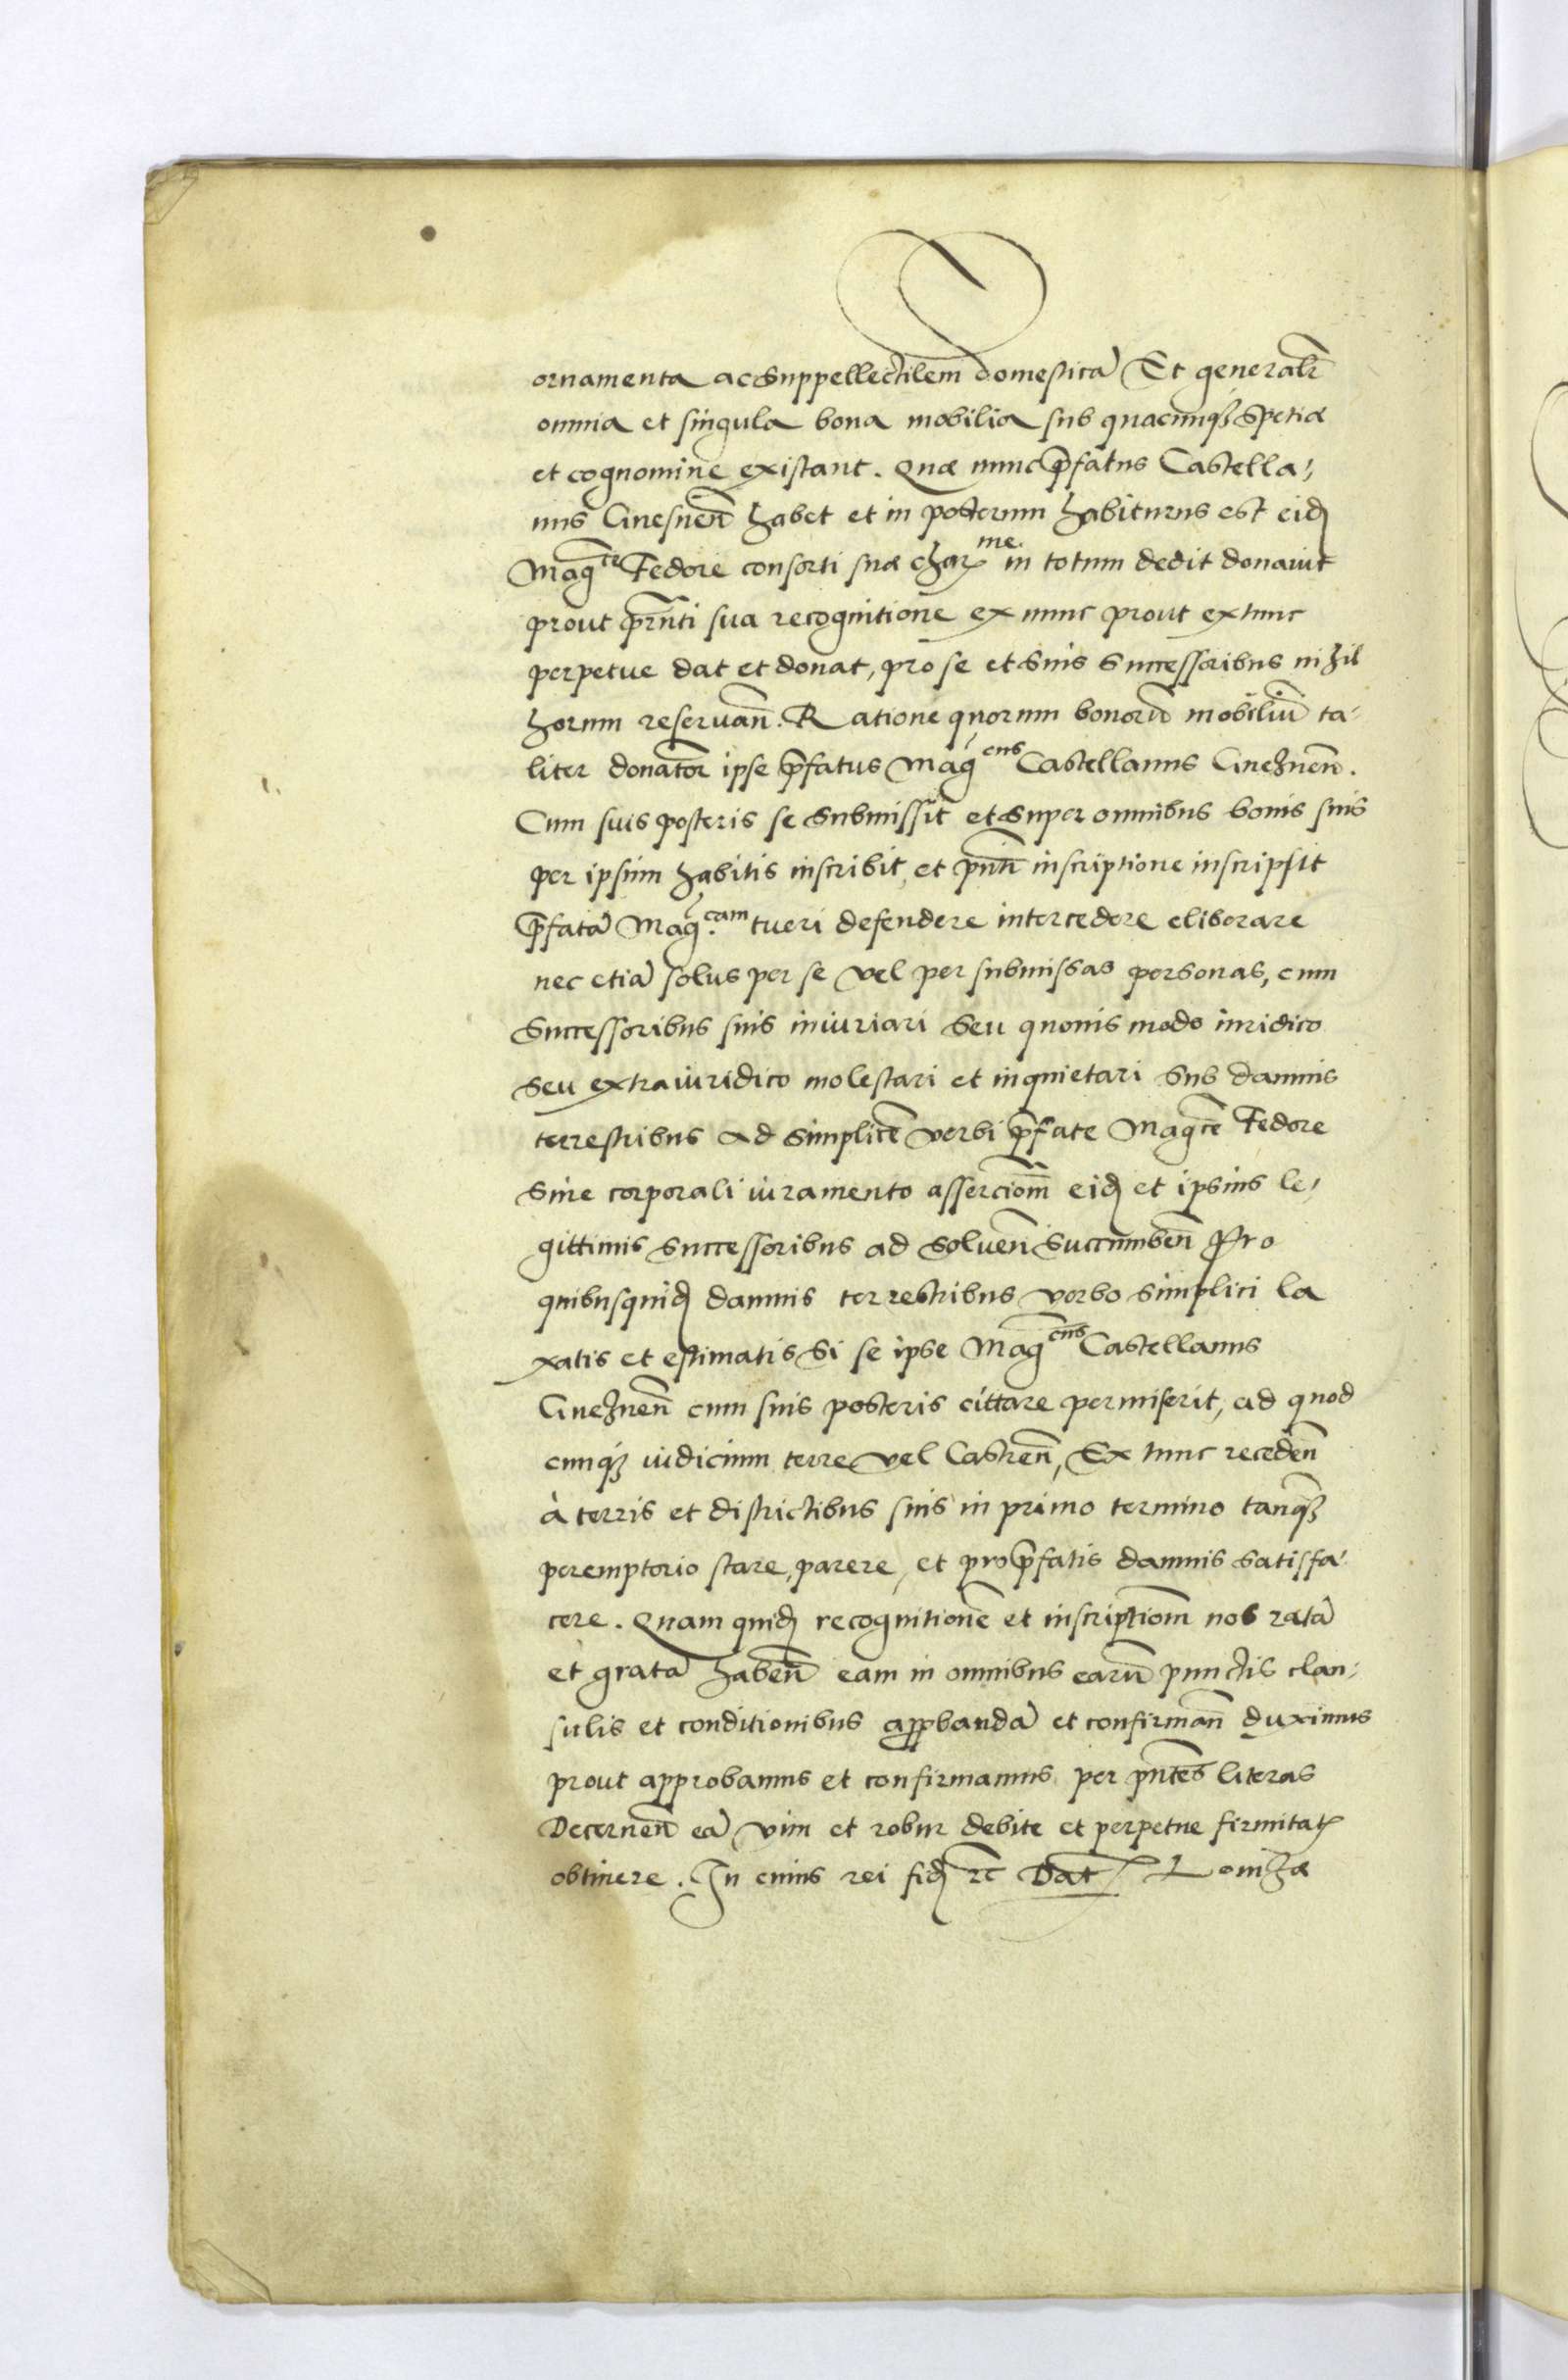 ornamenta ac Suppellectilem domesticã Et generalr̃
omnia et singula bona mobilia sub quacunqȝ Spetiæ
et cognomine existant. Quæ nunc p̃fatus Castella⸗
nus Gnesneñ habet et in posterum habiturus est eidȝ
Magᶜᵉ Fedore consorti suæ charᵐᵉ· in totum dedit donavit
prout pr̃nti sua recognitione ex nunc prout extunc
perpetue dat et donat, pro se et Suis Successoribus nihil
horum reservañ. Ratione quorum bonorũ mobiliũ ta⸗
liter donator̃ ipse p̃fatus Magᶜⁿˢ Castellanus Gnezneñ.
Cum suis posteris se Submissit et Super omnibus bonis suis
per ipsum habitis inscribit, et pñti inscriptione inscripsit
p̃fatã Mag.ᶜᵃᵐ tueri defendere intercedere eliberare
nec etiã solus per se vel per submissas personas, cum
Successoribus suis iniuriari Seu quovis modo iuridico
Seu extraiuridico molestari et inquietari Sub damnis
terrestribus ad Simplicẽ verbi p̃fate Magcẽ Fedore
Sine corporali iuramento assercionm̃ eidȝ et ipsius le⸗
gittimis Successoribus ad Solueñ Succumbeñ Pro
quibusquidȝ damnis terrestribus verbo Simplici la
xatis et estimatis Si se ipse Magᶜⁿˢ Castellanus
Gnezneñ cum suis posteris cittare permiserit, ad quod
cunqȝ iudicium terre vel Castreñ, Ex tunc recedeñ
à terris et districtibus suis in primo termino tanqȝ
peremptorio stare, parere, et pro p̃fatis damnis Satisfa⸗
cere. Quam quidȝ recognitionẽ et inscriptionm̃ nos ratã
et gratã habeñ eam in omnibus earũ punctis clau⸗
sulis et conditionibus appbandã et confirmañ duximus
prout approbamus et confirmamus per pñtes literas
Decerneñ eã vim et robur debite et perpetue firmitatȝ
obtinere. In cuius rei fidȝ rc̃ Dat̃ Lomzæ